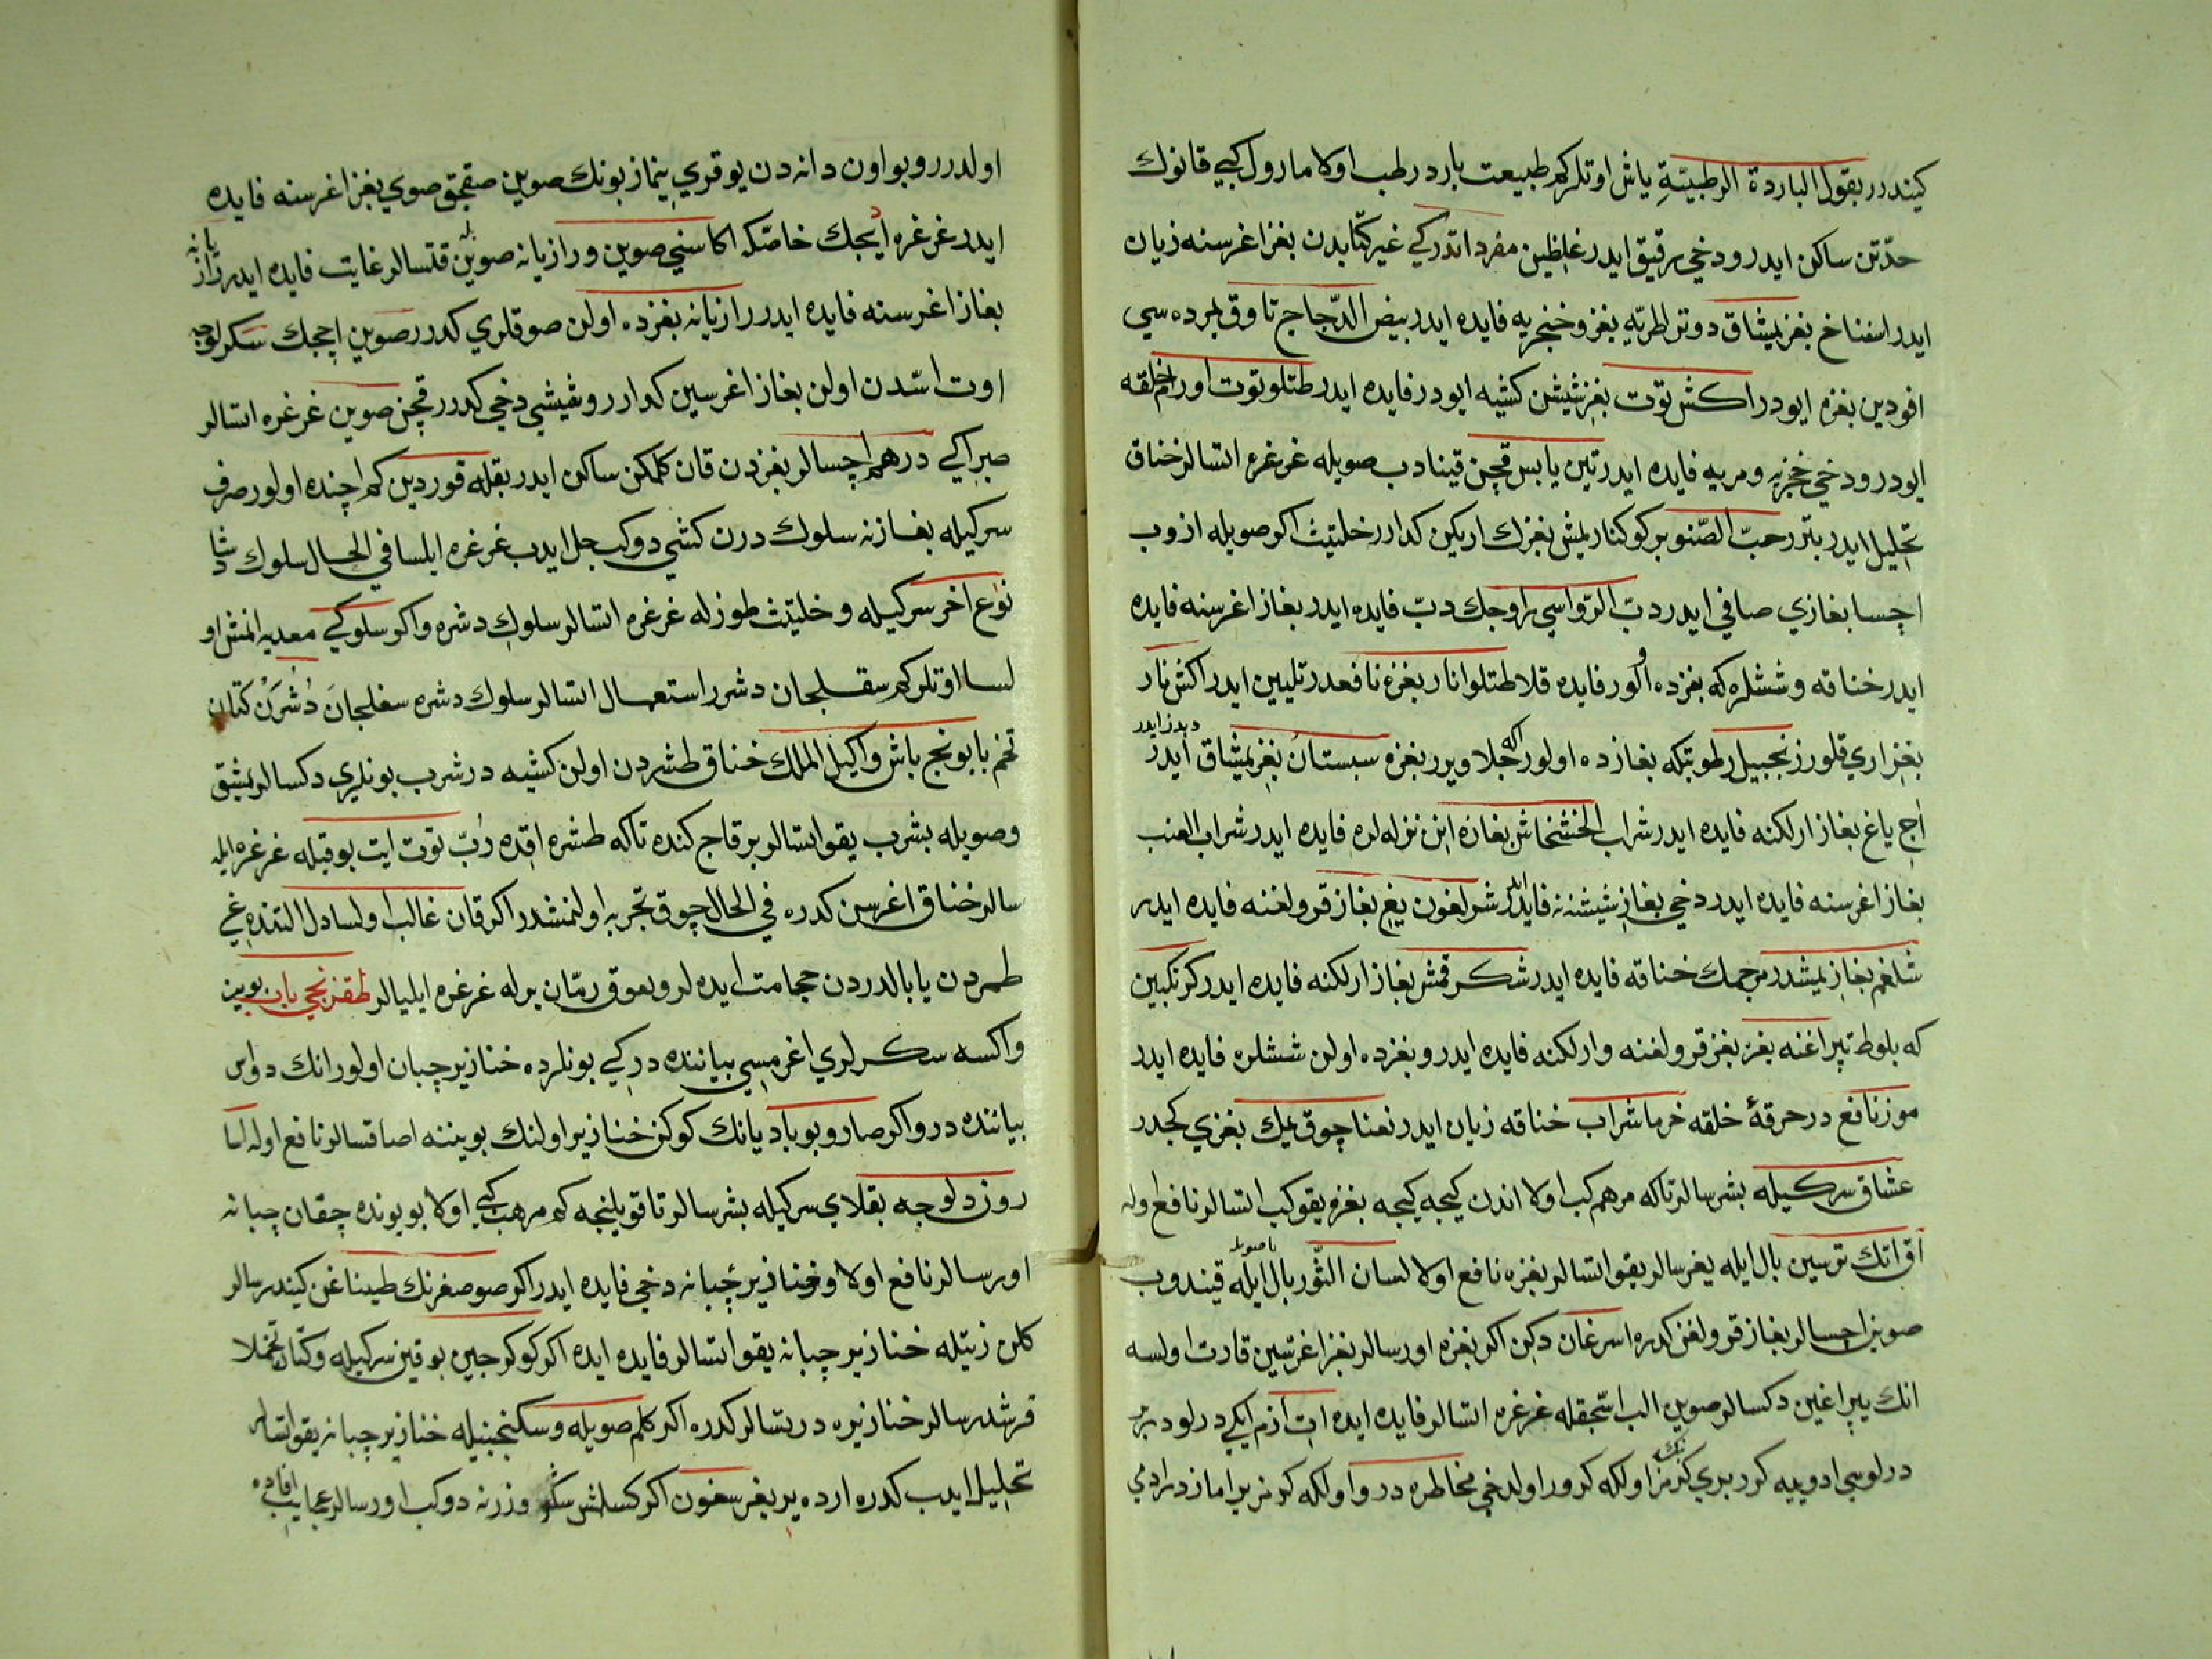 كيندرر بقول الباردة الرطبيّةِ ياش اوتلركم طبيعت بارد رطب اولا مارول كبي قانوك
حدّتن ساكن ايدر ودخي رقيق ايدر غليظين مفرد اتدركي غير كتابدن بغز اغرسنه زيان
ايدر اسفناخ بغز يمشاق دوتر لطريّه بغز وخنجريه فايده ايدر بيض الدّجاج تاوق يمرده سي
افودين بغزه ايودر اكشى توت بغز شيشن كشيه ايودر فايده ايدر طتلو توت اورام خلقه
ايودر ودخي خجزيه ومريه فايده ايدر تين يابس قچن قينادب صويله غرغره اتسالر خناق
تحليل ايدر بتر رحبّ الصّنوبر كوكنار يمش بغزك اريكين كدارر خليتيث اكر صويله ازوب
اچسا بغازي صافي ايدر دبّ الرّواسي راوجك دبّ فايده ايدر بغاز اغرسنه فايده
ايدر خناقه وششلره كه بغزده اولور فايده قلا طتلو انار بغزه نافعدر تليين ايدر اكش نار
بغز اري قلور زنجبيل رطوبتكه بغازده اولور اكه جلا ويرر بغزه سبستان بغز يمشاق ايدر
اج ياغ بغاز ارلكنه فايده ايدر شراب الخشخاش بغازه اين نزله لره فايده ايدر شراب العنب
بغاز اغرسنه فايده ايدر دخي بغاز شيشنه فايده ايدر شرلغون يغي بغاز قرولغنه فايده ايدر
شلغم بغاز يمشدر مرجمك خناقه فايده ايدر شكر قمش بغاز ارلكنه فايده ايدر كزنكبين
كه بلوط تپراغنه بغز بغز قرولغنه وارلكنه فايده ايدر وبغزده اولن ششلره فايده ايدر
موز نافع در حرقهٔ خلقه خرما شراب خناقه زيان ايدر نعنا چوق يمك بغزي كجدر
عشاق سركيله بشرسالر تاكه مرهم كب اولا اندن كيجه كيجه بغزه يقو كب اتسالر نافع اوله
آق اتك ترسين بال ايله يغرسالر يقو اتسالر بغزه نافع اولا لسان الثّور بال ايله قيندوب
صوين اچسالر بغاز قرولغن كدره اسرغان دكن اكر بغزه اورسالر بغز اغرتسين قارت اولسه
انك يپراغين دكسالر صوين الب استجقله غرغره اتسالر فايده ايده ات ازم ايكي درلودر بر
درلوسي ادويه كرر بري كرمز اولكه كرور اولدخي مخاطره در واولكه كرمز يرامازدر ادمي
اولدرر وبو اون دانه دن يوقري ينماز بونك صوين صقجق صوي بغز اغرسنه فايده
ايدر غرغره ايجك خاصّكه اكاسني صوين ورازيانه صوين بله قتسالر غايت فايده ايدر رازيانه
بغاز اغرسنه فايده ايدر رازيانه بغزده اولن صوقلري كدرر صوين اچجك سكرلوجه
اوت اسّدن اولن بغاز اغرسين كدارر وشيشي دخي كدرر قچن صوين غرغره اتسالر
صبر اكي درهم اچسالر بغزدن قان كلمكن ساكن ايدر بقله قوردين كم اچنده اولور صرف
سركيله بغازنه سلوك درن كشي دوكب جل ايدب غرغره ايلسا في الحال سلوك دشا
نوع اخر سركيله وخليتيث طوزله غرغره اتسالر سلوك دشره واكر سلوكي معديه انمش او
لسا اوتلركم سقلجان دشرر استعمال اتسالر سلوك دشره سغلجان دُشرَن كتان
تخم بابونج باش واكيل الملك خناق طشردن اولن كشيه درشرب بونلري دكسالر بشيق
وصويله بشرب يقو اتسالر برقاج كنده تاكه طشره اقده رُبّ توت ايت بوقيله غرغره ايله
سالر خناق اغرسن كدره في الحال چوق تجربه اولنمشدر اكر قان غالب اولسا دل التنده غي
طمردن يا بالدردن حجامت ايده لر وبعوق رمّان بوله غرغره ايليالر طقزنجي باب بوين
واكسه سكرلري اغرمسي بياننده دركي بونلرده خنازير چبان اولور انك دواس
بياننده در واكر صارو بوياديانك كوكن خنازير اولنك بويننه اصاقسالر نافع اوله اما
روز دلوجه بقلاي سركيله بشرسالر تا قويلنجه كم مرهب كبي اولا بويونده چقان چبانه
اورسالر نافع اولا وخنازير چبانه دخي فايده ايدر اكر صوصغرنك طيناغن كيندرسالر
كلن زيتله خنازير چبانه يقو اتسالر فايده ايده اكر كوكرجين بوقين سركيله وكتان تخملا
قرشدرسالر خنازيره دربتسالر كدره اكر كلم صويله وسكنجبنيله خنازير چبانه يقو اتسالر
تحليل ايدب كدره ارده ير يغير سغون اكر كسلمش وزرنه دوكب اورسالر عجايب فايده